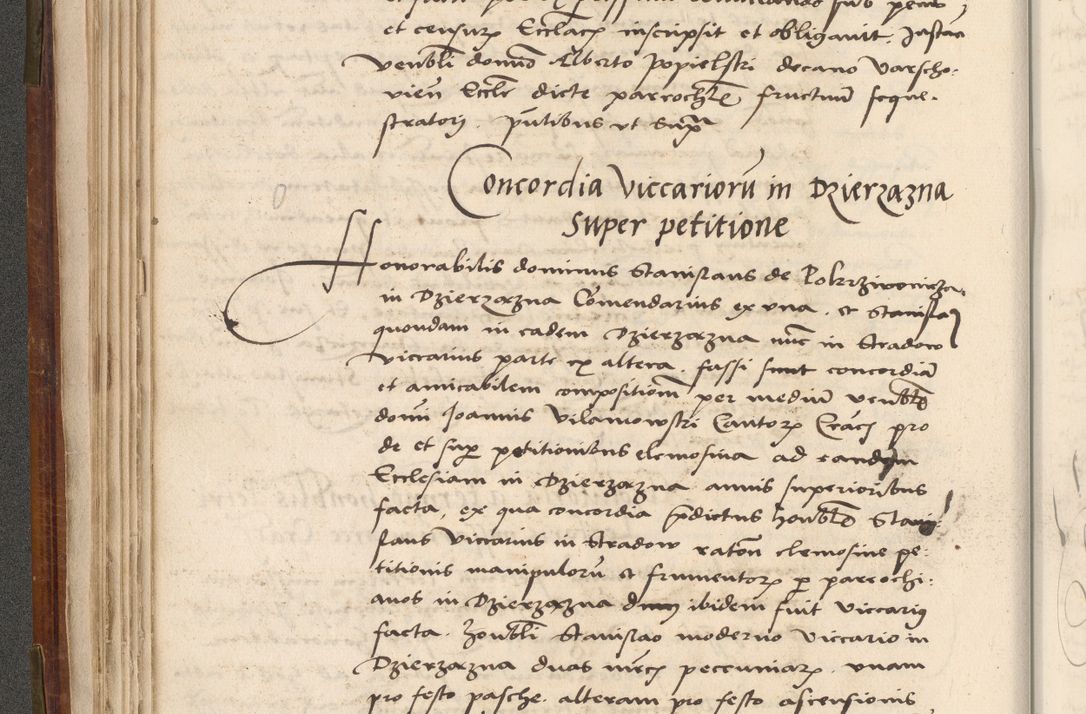 et censurꝫ Ecclacꝫ inscripsit et obligavit. Instan
venbli domno Alberto Popielski decano Varscho:
vien Eccle dicte parrochle fructuum seque-
stratori. pntibus vt supra
Concordia Viccariorũ in Dzierzazna
super petitione
Honorabilis dominus Stanislaus de
in Dzierzazna Comendarius ex vna, et Stanislaꝰ
quondam in eadem Dzierzazna nũc in Stradow
viccarius parte ex altera. fassi sunt concordiã
et amicabilem compositionẽ per mediũ venblꝭ
domi Joannis Vilamowski Cantorꝭ Cracꝭ pro
de et sup petitionibus elemosina ad eandem
Ecclesiam in Dzierzazna annis superioribus
facta, ex qua concordia p̃dictus honblꝭ Stani-
slaus Viccarius in Stradow raton elemosine pe-
titionis manipulorũ et frumentorꝫ p parrochi-
anos in Dzierzazna dum ibidem fuit Viccariꝰ
facta. honbli Stanislao moderno Viccario in
Dzierzazna duas mrcꝭ peccuniarꝫ. vnam
pro festo pasche. alteram pro festo ascensionis